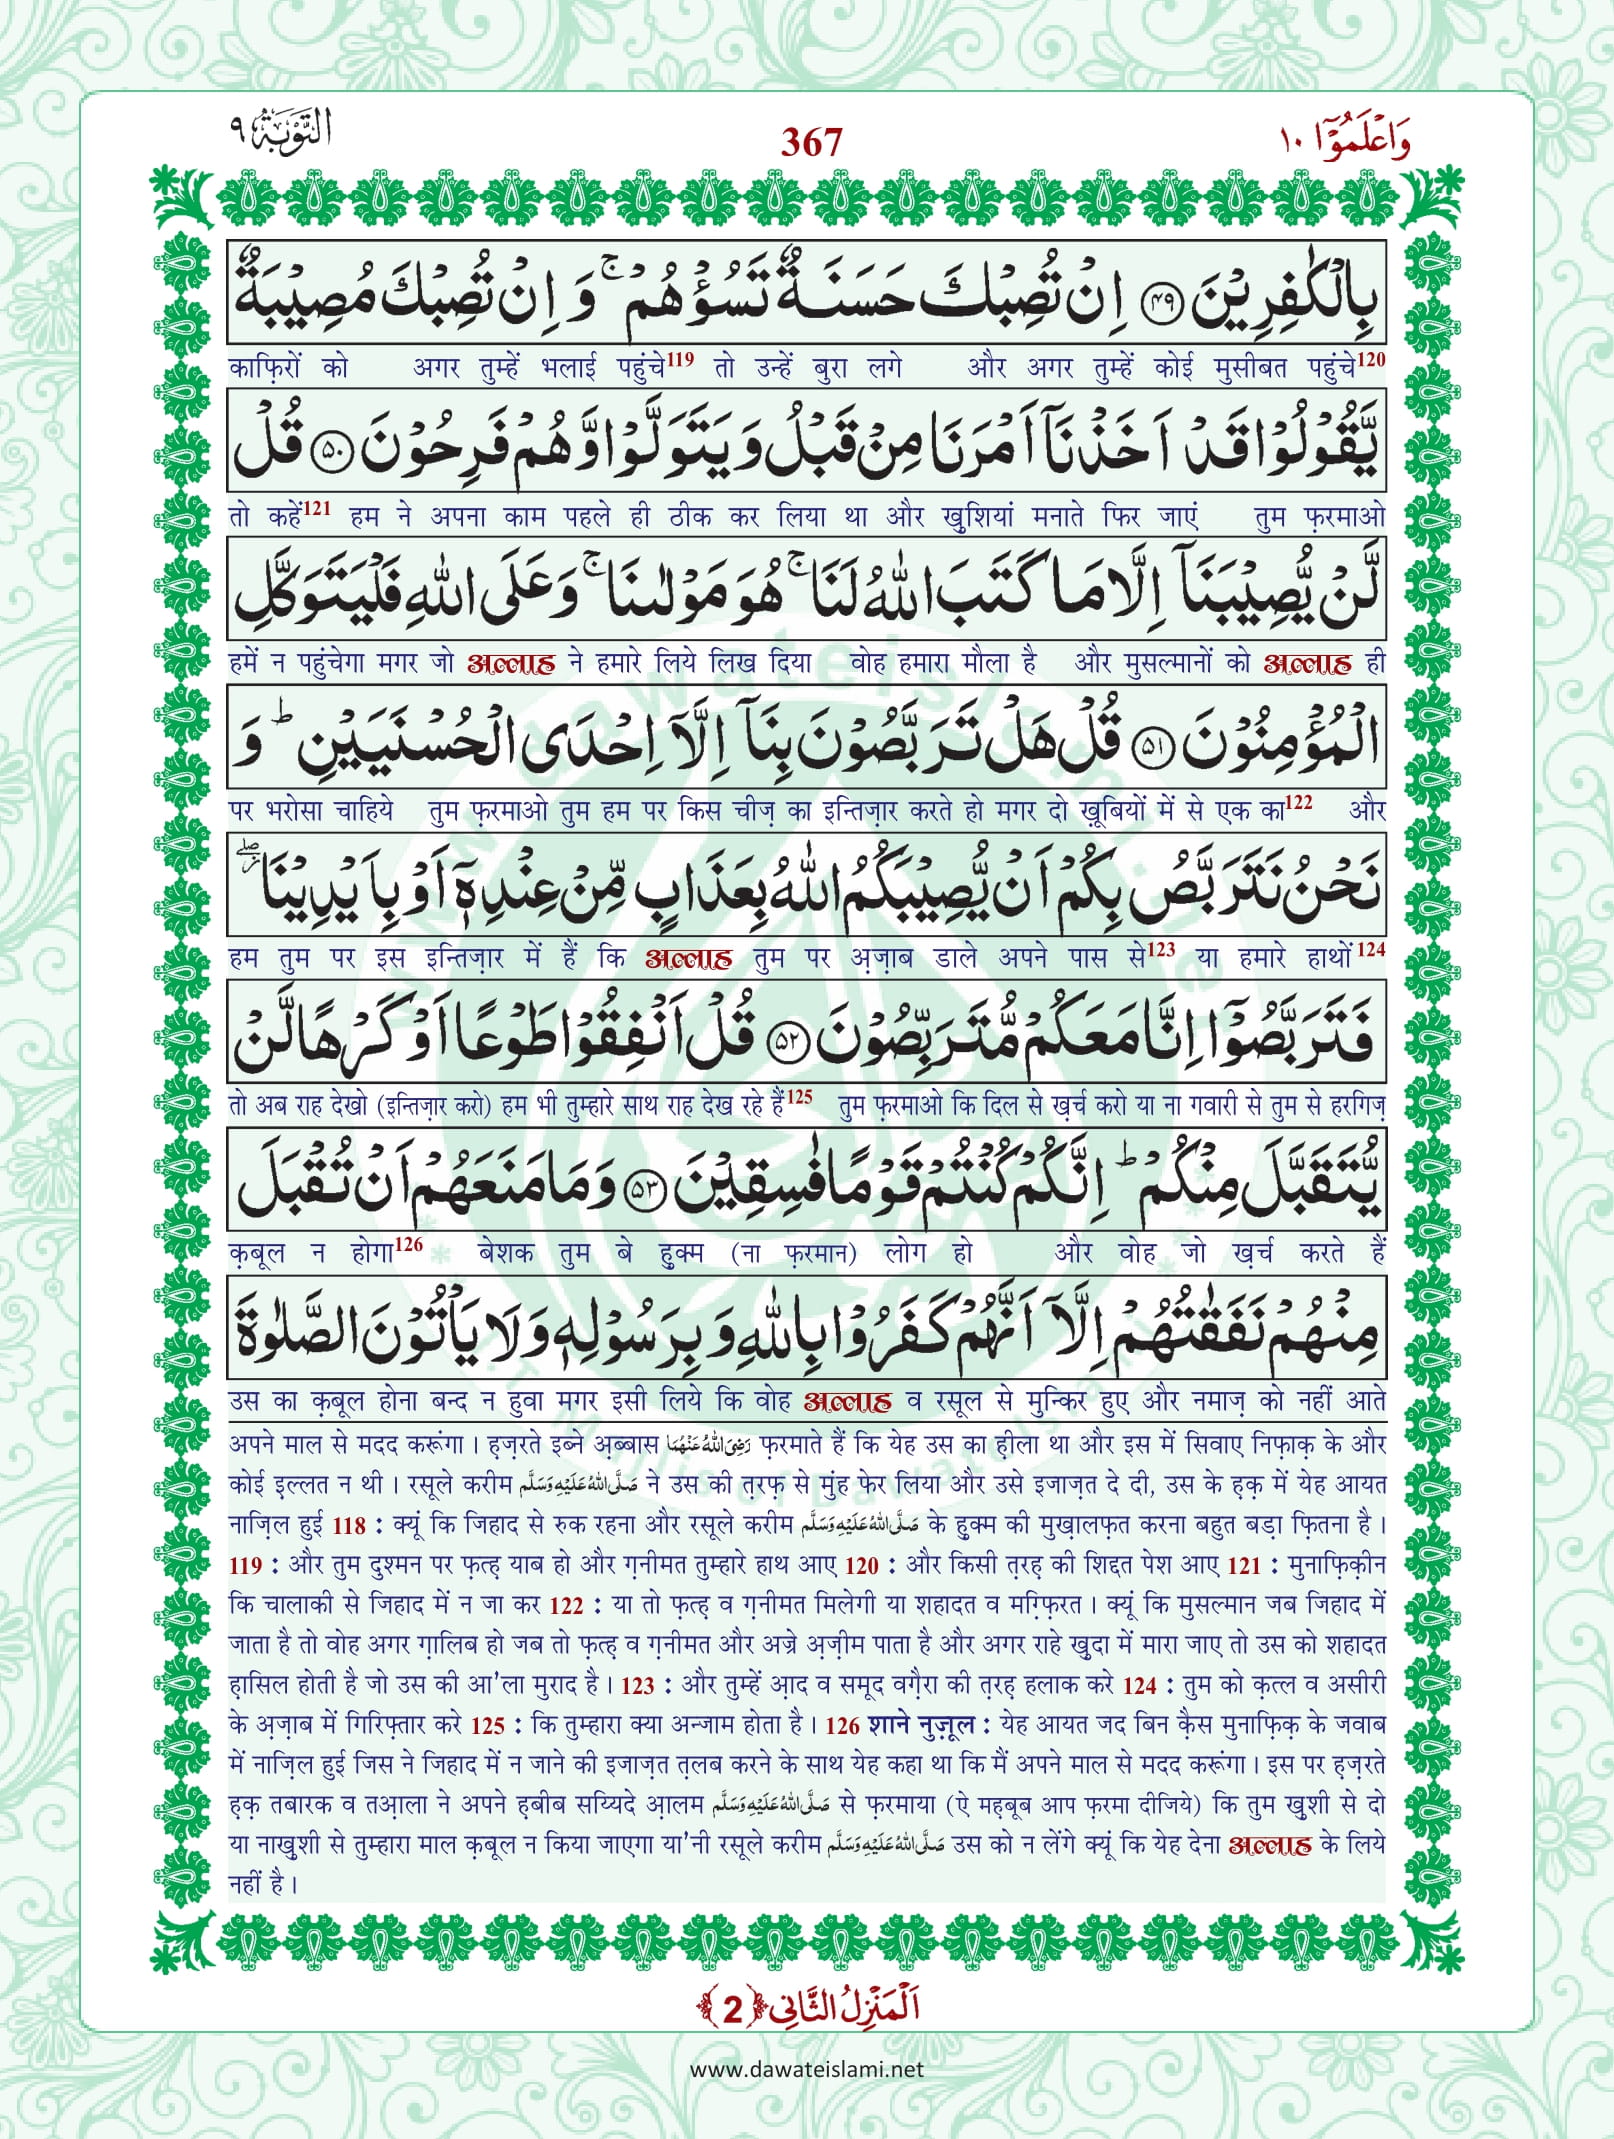 وَاعْلَمُوْۤا ١٠
367
التَّوْبَة ٩
بِالْكٰفِرِیْنَ ﴿۴۹﴾ اِنْ تُصِبْكَ حَسَنَةٌ تَسُؤْهُمْ ۚ وَ اِنْ تُصِبْكَ مُصِیْبَةٌ
काफ़िरों को अगर तुम्हें भलाई पहुंचे119 तो उन्हें बुरा लगे और अगर तुम्हें कोई मुसीबत पहुंचे120
یَّقُوْلُوْا قَدْ اَخَذْنَاۤ اَمْرَنَا مِنْ قَبْلُ وَ یَتَوَلَّوْا وَّ هُمْ فَرِحُوْنَ ﴿۵۰﴾ قُلْ
तो कहें121 हम ने अपना काम पहले ही ठीक कर लिया था और खुशियां मनाते फिर जाएं तुम फ़रमाओ
لَّنْ یُّصِیْبَنَاۤ اِلَّا مَا كَتَبَ اللّٰهُ لَنَا ۚ هُوَ مَوْلٰىنَا ۚ وَ عَلَى اللّٰهِ فَلْیَتَوَكَّلِ
हमें न पहुंचेगा मगर जो अल्लाह ने हमारे लिये लिख दिया वोह हमारा मौला है और मुसल्मानों को अल्लाह ही
الْمُؤْمِنُوْنَ ﴿۵۱﴾ قُلْ هَلْ تَرَبَّصُوْنَ بِنَاۤ اِلَّاۤ اِحْدَى الْحُسْنَیَیْنِ ؕ وَ
पर भरोसा चाहिये तुम फ़रमाओ तुम हम पर किस चीज़ का इन्तिज़ार करते हो मगर दो ख़ूबियों में से एक का122 और
نَحْنُ نَتَرَبَّصُ بِكُمْ اَنْ یُّصِیْبَكُمُ اللّٰهُ بِعَذَابٍ مِّنْ عِنْدِهٖۤ اَوْ بِاَیْدِیْنَا ۖ٘
हम तुम पर इस इन्तिज़ार में हैं कि अल्लाह तुम पर अ़ज़ाब डाले अपने पास से123 या हमारे हाथों124
فَتَرَبَّصُوْۤا اِنَّا مَعَكُمْ مُّتَرَبِّصُوْنَ ﴿۵۲﴾ قُلْ اَنْفِقُوْا طَوْعًا اَوْ كَرْهًا لَّنْ
तो अब राह देखो (इन्तिज़ार करो) हम भी तुम्हारे साथ राह देख रहे हैं125 तुम फ़रमाओ कि दिल से ख़र्च करो या ना गवारी से तुम से हरगिज़
یُّتَقَبَّلَ مِنْكُمْ ؕ اِنَّكُمْ كُنْتُمْ قَوْمًا فٰسِقِیْنَ ﴿۵۳﴾ وَ مَا مَنَعَهُمْ اَنْ تُقْبَلَ
क़बूल न होगा126 बेशक तुम बे हुक्म (ना फ़रमान) लोग हो और वोह जो ख़र्च करते हैं
مِنْهُمْ نَفَقٰتُهُمْ اِلَّاۤ اَنَّهُمْ كَفَرُوْا بِاللّٰهِ وَ بِرَسُوْلِهٖ وَ لَا یَاْتُوْنَ الصَّلٰوةَ
उस का क़बूल होना बन्द न हुवा मगर इसी लिये कि वोह अल्लाह व रसूल से मुन्किर हुए और नमाज़ को नहीं आते
अपने माल से मदद करूंगा। ह़ज़रते इब्ने अ़ब्बास رَضِیَ اللّٰهُ عَنْهُمَا फ़रमाते हैं कि येह उस का ह़ीला था और इस में सिवाए निफ़ाक़ के और
कोई इल्लत न थी। रसूले करीम صَلَّى اللّٰهُ عَلَیْهِ وَسَلَّم ने उस की त़रफ़ से मुंह फेर लिया और उसे इजाज़त दे दी, उस के ह़क़ में येह आयत
नाज़िल हुई 118 : क्यूं कि जिहाद से रुक रहना और रसूले करीम صَلَّى اللّٰهُ عَلَیْهِ وَسَلَّم के हुक्म की मुख़ालफ़त करना बहुत बड़ा फ़ितना है।
119 : और तुम दुश्मन पर फ़त्ह़ याब हो और ग़नीमत तुम्हारे हाथ आए 120 : और किसी त़रह़ की शिद्दत पेश आए 121 : मुनाफ़िक़ीन
कि चालाकी से जिहाद में न जा कर 122 : या तो फ़त्ह़ व ग़नीमत मिलेगी या शहादत व मग़्फ़िरत। क्यूं कि मुसल्मान जब जिहाद में
जाता है तो वोह अगर ग़ालिब हो जब तो फ़त्ह़ व ग़नीमत और अज्रे अ़ज़ीम पाता है और अगर राहे खुदा में मारा जाए तो उस को शहादत
ह़ासिल होती है जो उस की आ'ला मुराद है। 123 : और तुम्हें आ़द व समूद वग़ैरा की त़रह़ हलाक करे 124 : तुम को क़त्ल व असीरी
के अ़ज़ाब में गिरिफ़्तार करे 125 : कि तुम्हारा क्या अन्जाम होता है। 126 शाने नुज़ूल : येह आयत जद बिन क़ैस मुनाफ़िक़ के जवाब
में नाज़िल हुई जिस ने जिहाद में न जाने की इजाज़त त़लब करने के साथ येह कहा था कि मैं अपने माल से मदद करूंगा। इस पर ह़ज़रते
ह़क़ तबारक व तआ़ला ने अपने ह़बीब सय्यिदे आ़लम صَلَّى اللّٰهُ عَلَیْهِ وَسَلَّم से फ़रमाया (ऐ मह़बूब आप फ़रमा दीजिये) कि तुम खुशी से दो
या नाखुशी से तुम्हारा माल क़बूल न किया जाएगा या'नी रसूले करीम صَلَّى اللّٰهُ عَلَیْهِ وَسَلَّم उस को न लेंगे क्यूं कि येह देना अल्लाह के लिये
नहीं है।
اَلْمَنْزِلُ الثَّانِی ﴿2﴾
www.dawateislami.net